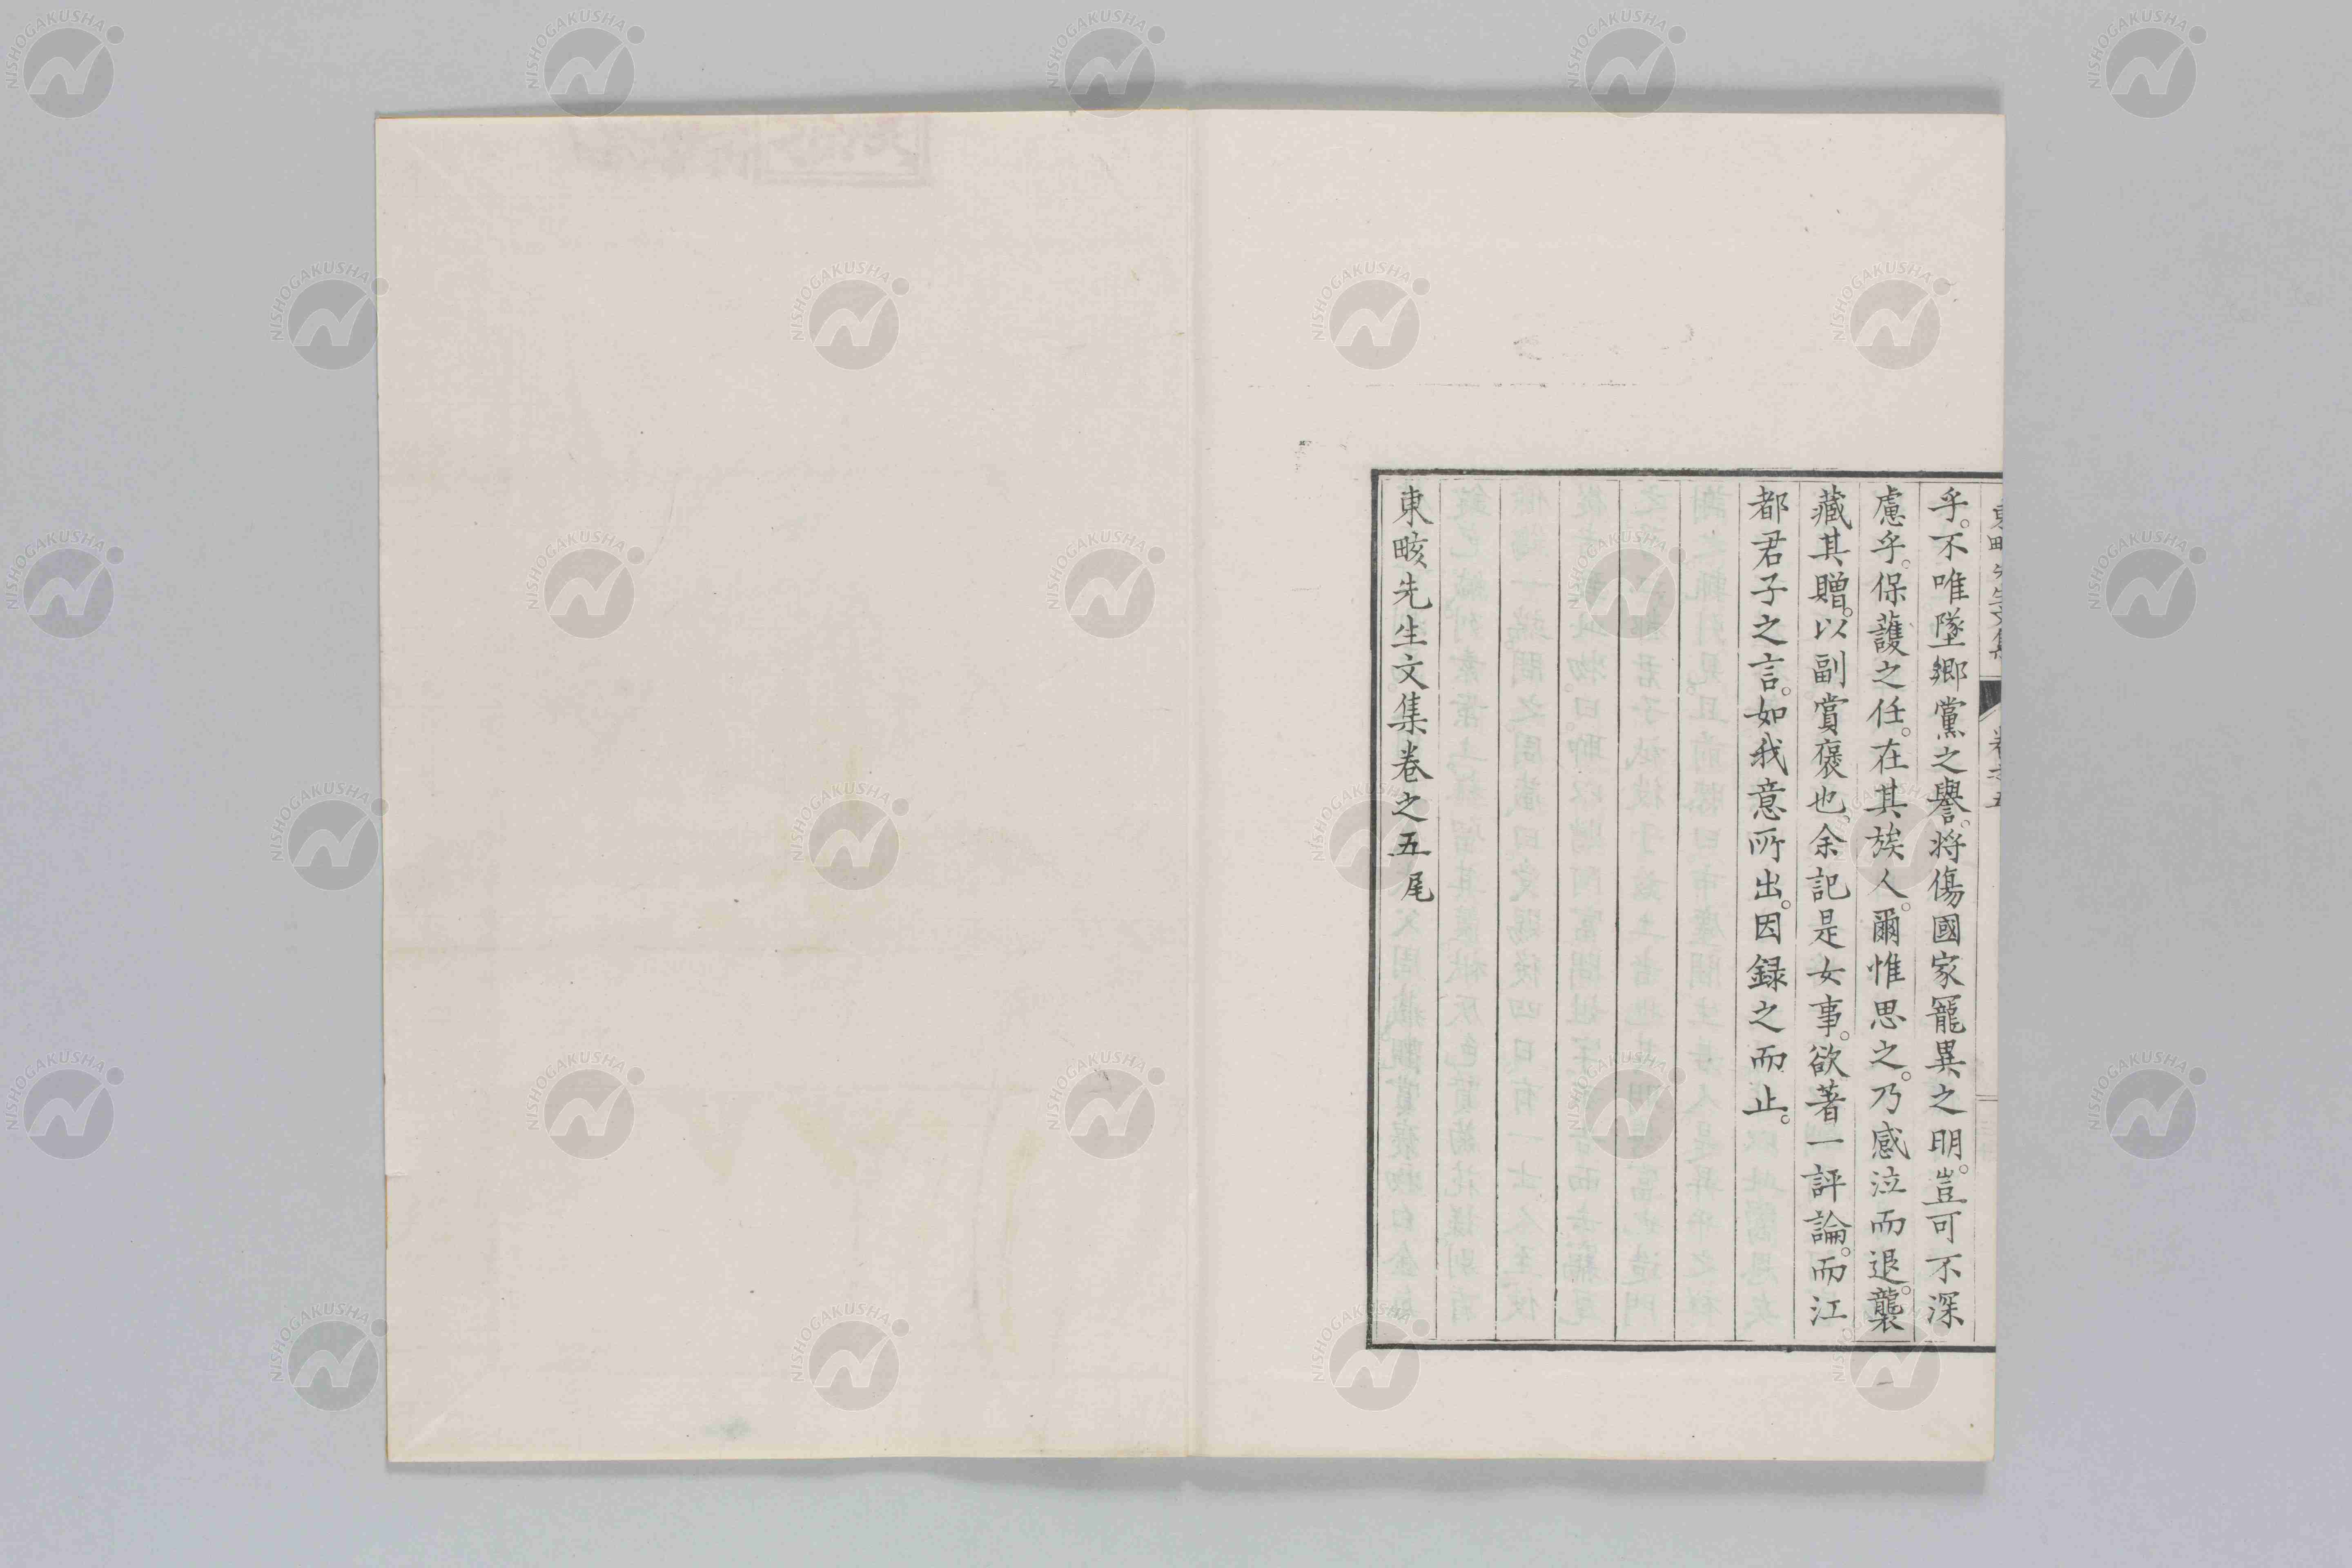 乎。不唯墜郷黨之譽。将傷國家寵異之明。豈可不深
慮乎。保護之任。在其族人。爾惟思之。乃感泣而退。襲
藏其贈。以副賞褒也。余記是女事。欲著一評論。而江
都君子之言。如我意所出。因録之而止。
東畡先生文集卷之五尾
NISHOGAKUSHA